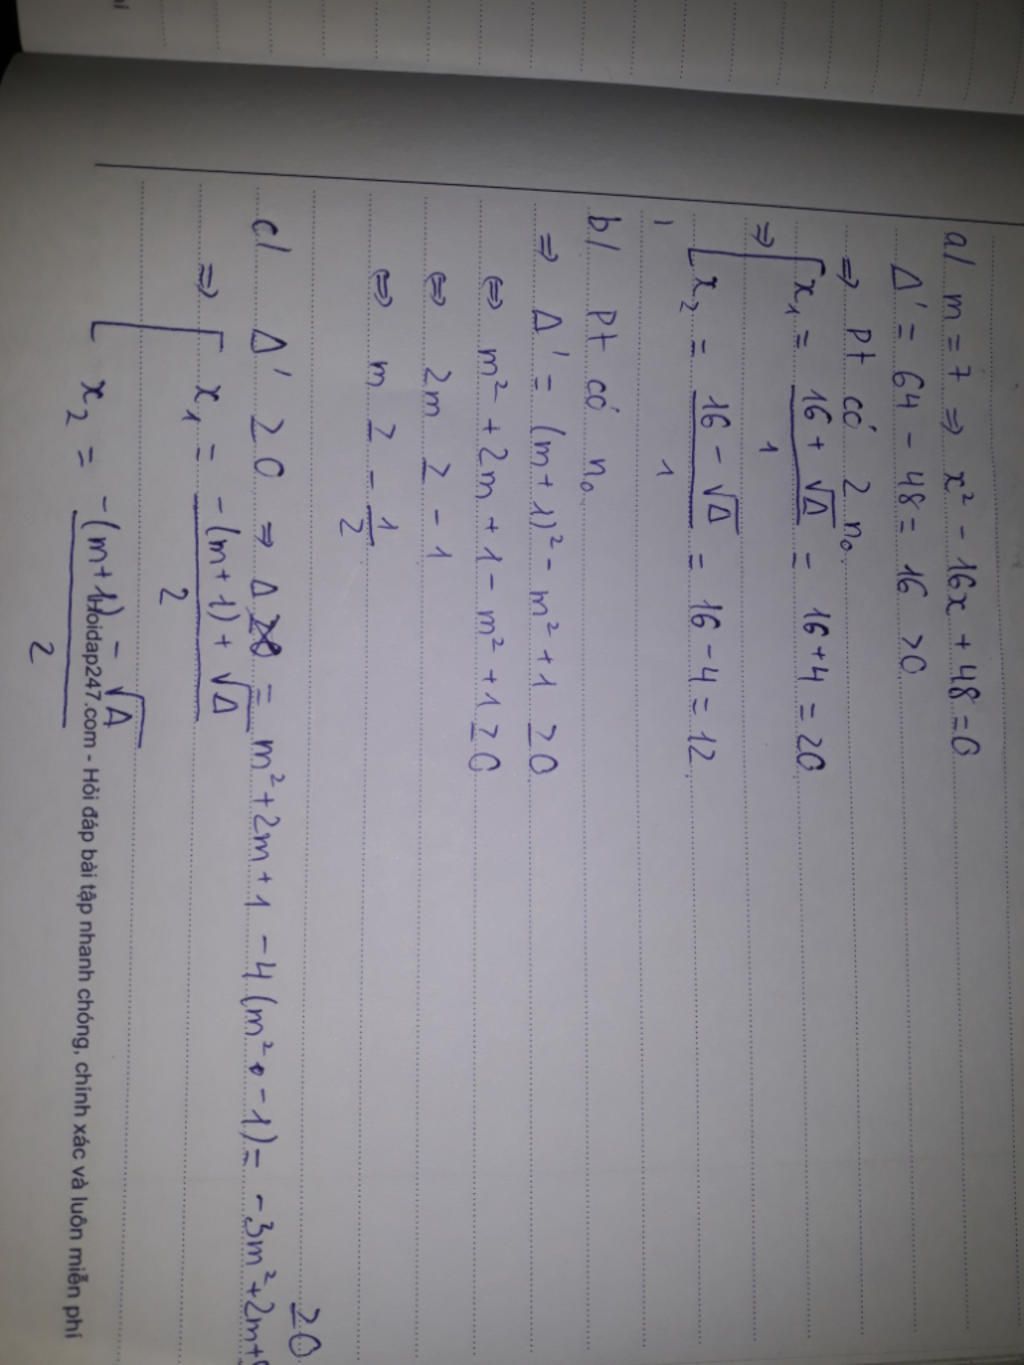 a/ m = 7 ⇒ x² - 16x + 48 = 0
Δ' = 64 - 48 = 16 > 0
⇒ Pt có 2 n₀
⇒ [ x₁ = (16 + √Δ)/1 = 16 + 4 = 20
x₂ = (16 - √Δ)/1 = 16 - 4 = 12
b/ Pt có n₀
⇒ Δ' = (m + 1)² - m² + 1 ≥ 0
⇔ m² + 2m + 1 - m² + 1 ≥ 0
⇔ 2m ≥ -1
⇔ m ≥ -1/2
c/ Δ' ≥ 0 ⇒ Δ = m² + 2m + 1 - 4(m² - 1) = -3m² + 2m +
≥ 0
⇒ [ x₁ = (-(m+1) + √Δ)/2
x₂ = (-(m+1) - √Δ)/2
Hoidap247.com - Hỏi đáp bài tập nhanh chóng, chính xác và luôn miễn phí